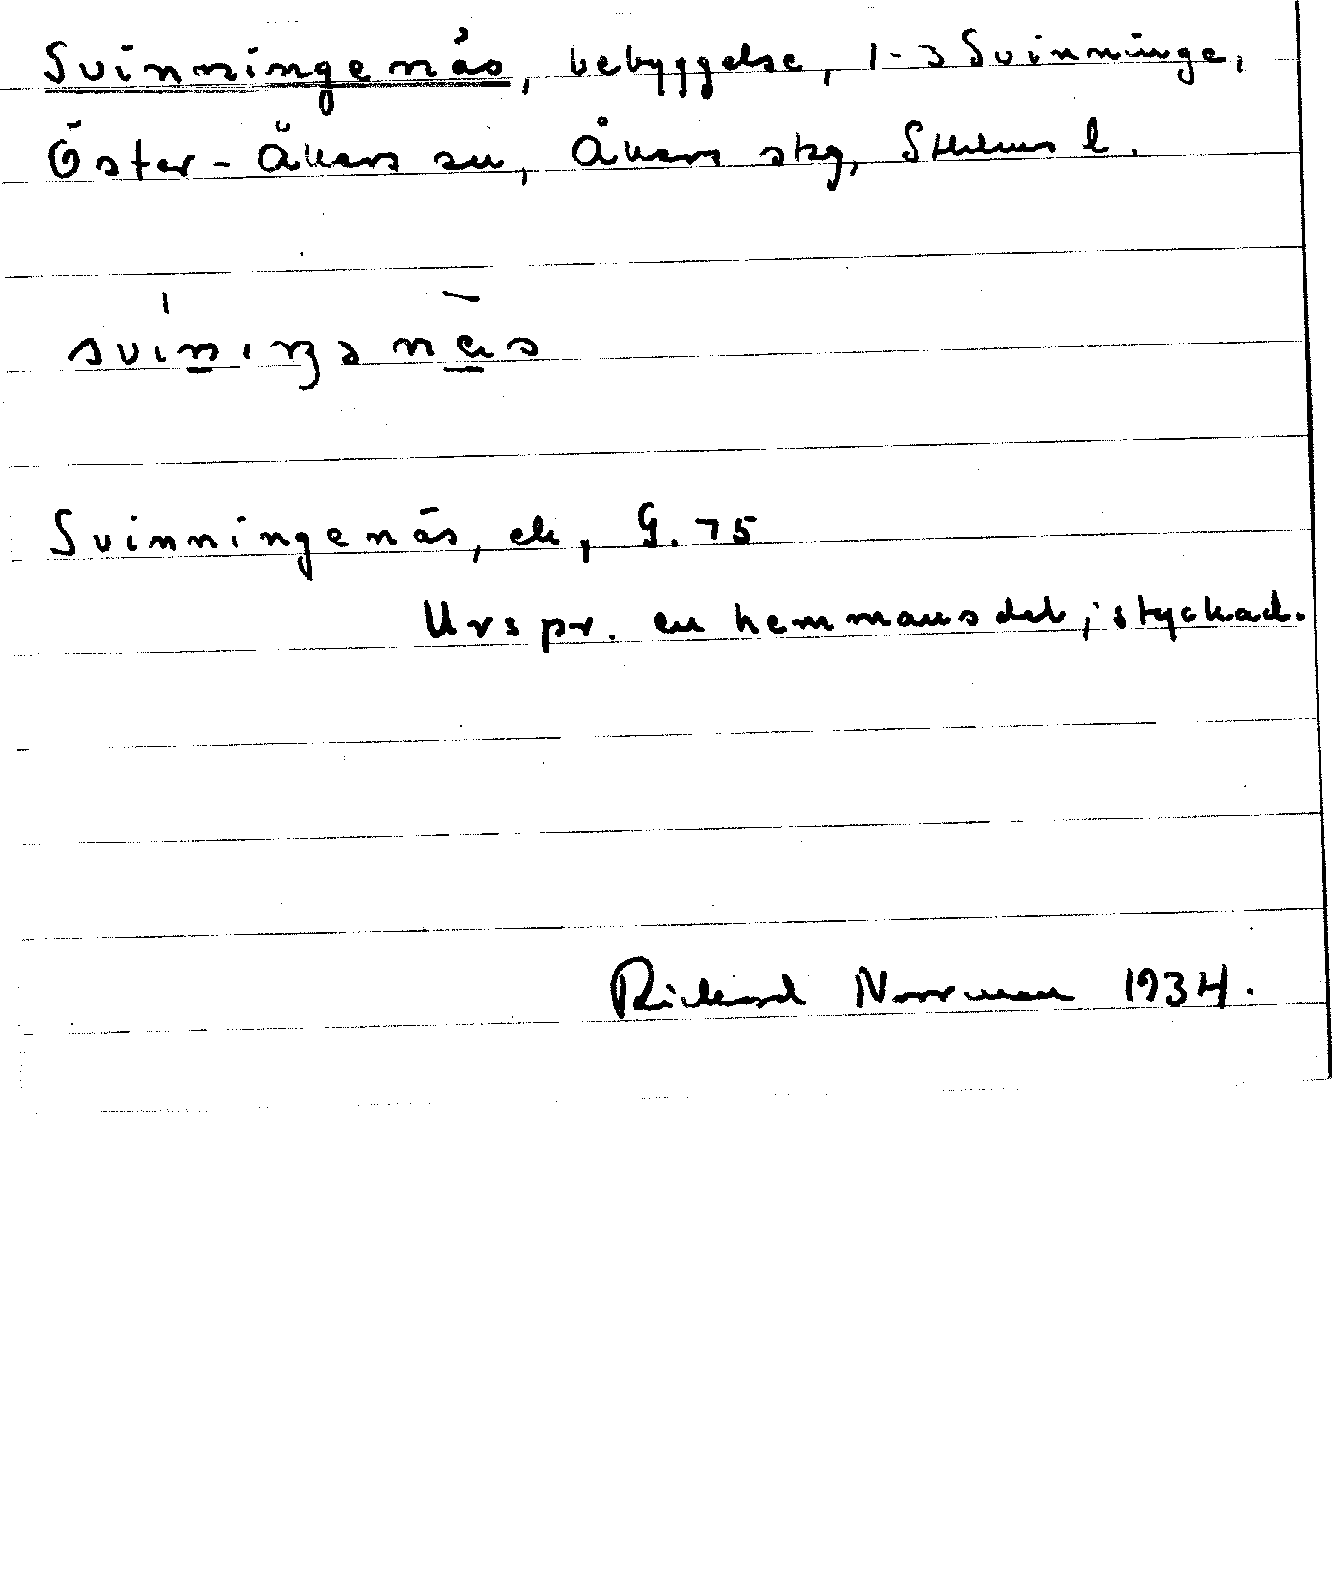 Svinningenäs, bebyggelse, 1-3 Svinninge,
Öster-Åkers sn, Åkers skg, Sthlms l.
Svinningenäs, ek, G. 75
Urspr. en hemmansdel, styckad.
Rickard Norrman 1934.